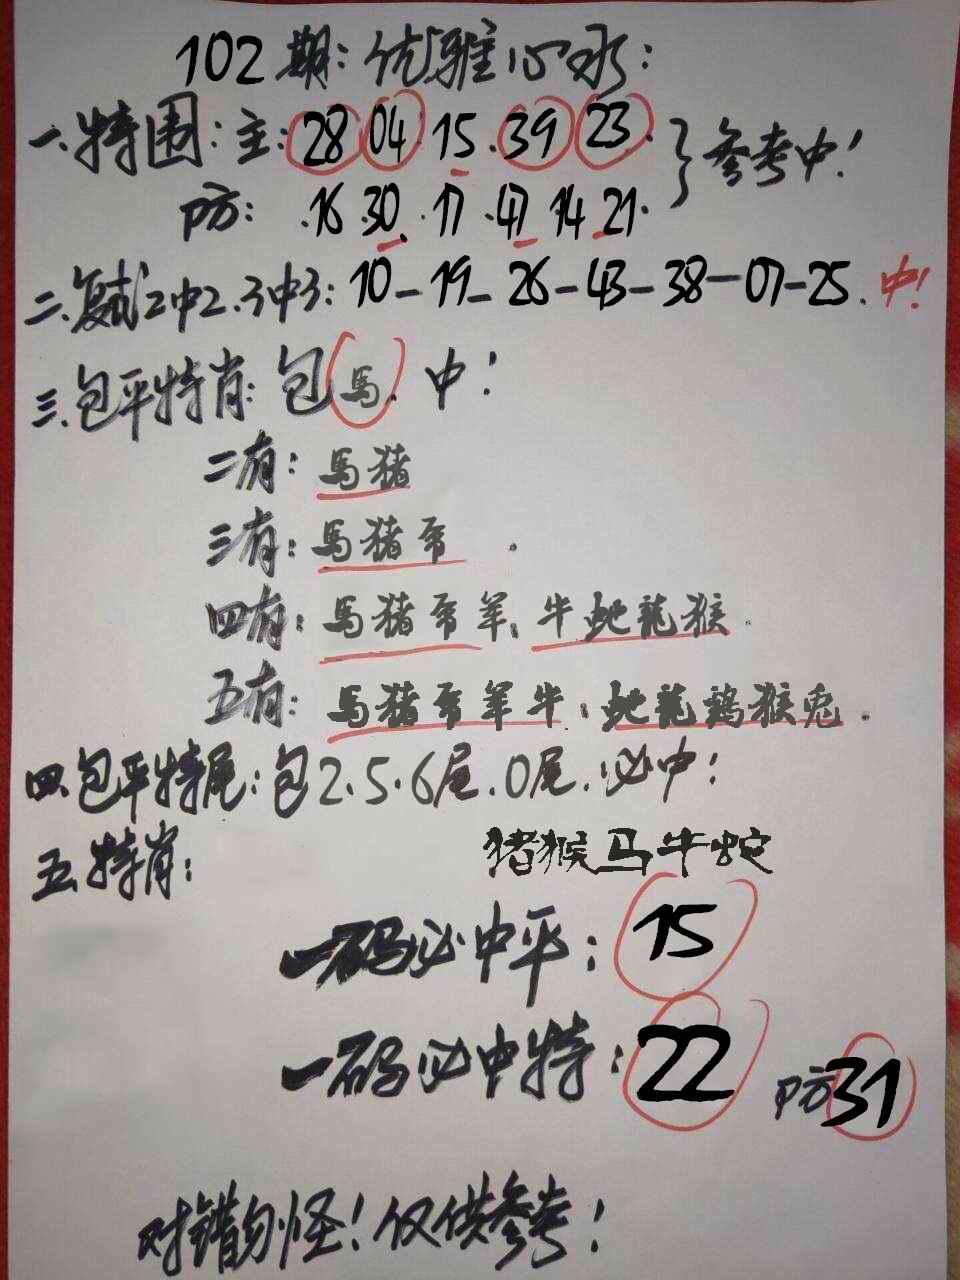 102期:优雅心水:
一.特围:主:28 04 15.39 23.}参考中!
防:.16 30..17.47 14 21.
二.复式2中2.3中3:10-19-26-43-38-07-25.中!
三.包平特肖:包馬.中!
二有:馬猪
三有:馬猪帝.
四有:馬猪帝羊.牛蛇龍猴.
五有:馬猪帝羊牛.蛇龍鷄猴兎.
四.包平特尾:包2.5.6尾.0尾.必中!
五.特肖: 猪猴马牛蛇
一码必中平:15
一码必中特:22 防31
对错勿怪!仅供参考!